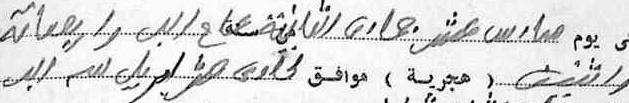 فى يوم سادس عشر جمادى الثانية عام الف واربعمائة
واثنتين ( هجرية ) موافق الحادى عشر ابريل سنه الف